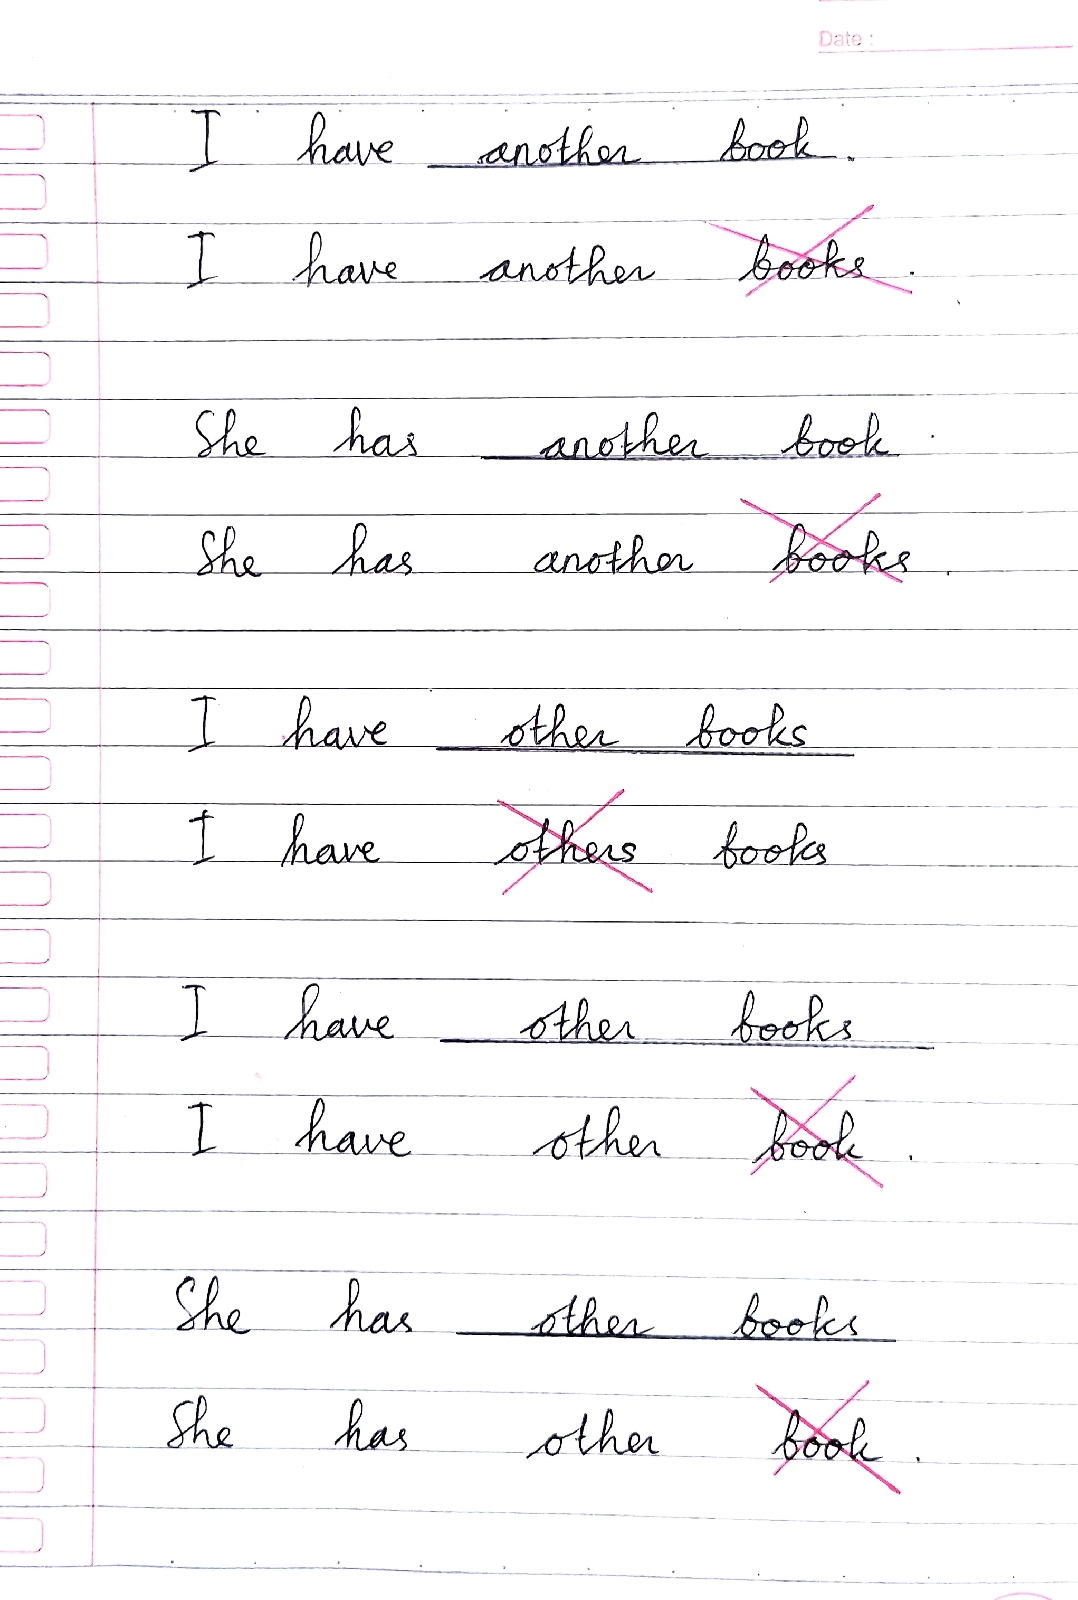 Date :
I have another book.
I have another books.
She has another book
She has another books.
I have other books
I have others books
I have other books
I have other book.
She has other books
She has other book.